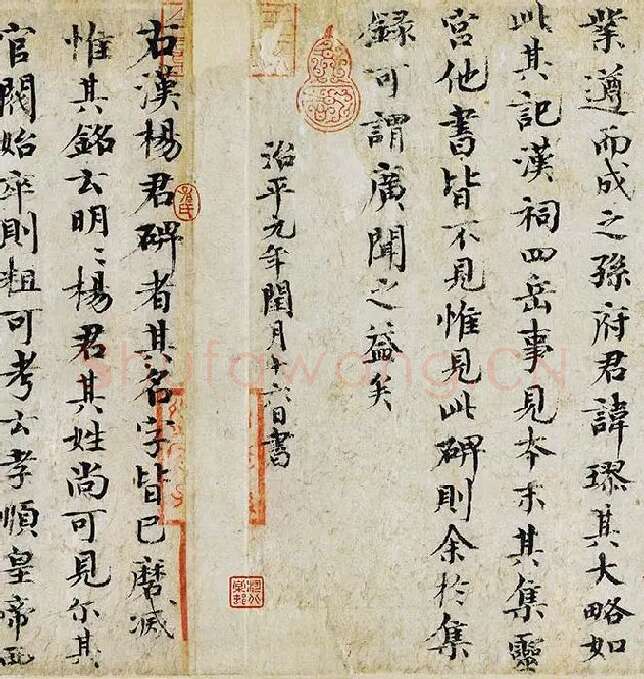 業遵而成之孫府君諱璆其大略如
此其記漢祠四岳事見本末其集靈
宮他書皆不見惟見此碑則余於集
錄可謂廣聞之益矣
治平元年閏月十六日書
右漢楊君碑者其名字皆已磨滅
惟其銘云明〻楊君其姓尚可見尔其
官閥始卒則粗可考云孝順皇帝西
shufawang.CN